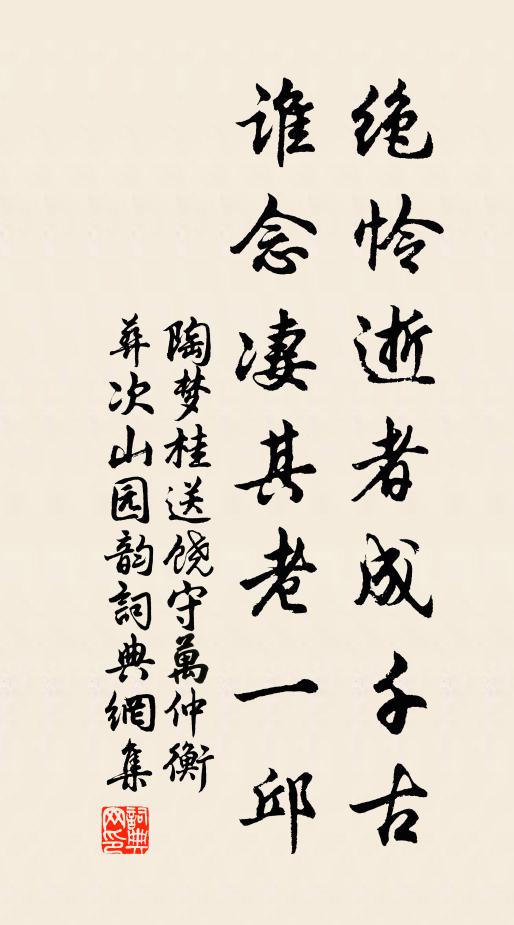 绝怜逝者成千古
谁念凄其老一邱
陶梦桂送饶守万仲衡
葬次山园韵词典网集
词典网印